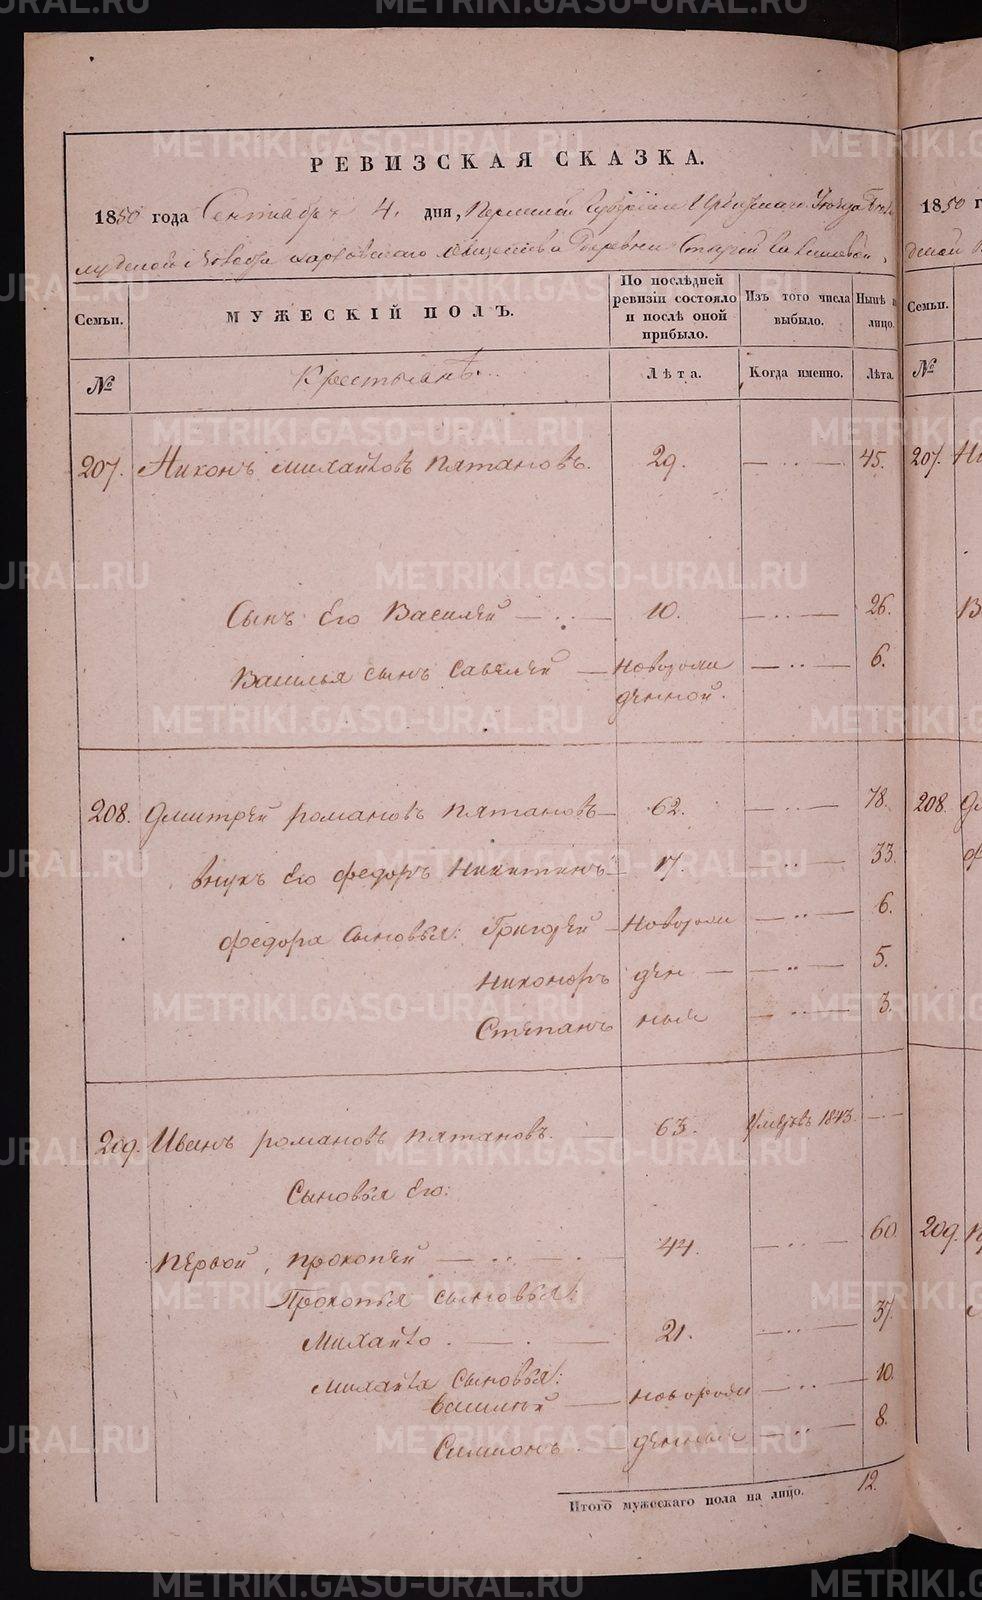 METRIKI.GASO-URAL.RU
РЕВИЗСКАЯ СКАЗКА.
1850 года Сентября 4. дня, Пермской Губернии Ирбитскаго Уезда
волости Харловскаго общества Деревни Старой
Семьи.
МУЖЕСКІЙ ПОЛЪ.
По послѣдней ревизіи состояло и послѣ оной прибыло.
Изъ того числа выбыло.
Нынѣ лицо.
№
Крестьянѣ.
Лѣта.
Когда именно.
Лѣта.
207. Никонъ михайловъ пятановъ. 29. — ·· — 45.
Сынъ Его Василей — ·· — 10. — ·· — 26.
Василья сынъ Савелей — новорож — ·· — 6.
денной.
208. Дмитрей романовъ пятановъ — 62. — ·· — 78.
внукъ Его федоръ никитинъ — 17. — ·· — 33.
федора Сыновья: Григорей — Новорож — ·· — 6.
Никоноръ ден — — ·· — 5.
Степанъ ные — ·· — 3.
209. Иванъ романовъ пятановъ. — 63. Умеръ въ 1843. — ·· —
Сыновья Его:
первой, прокопей — ·· — 44. — ·· — 60.
Прокопья сыновья:
Михайло. — · — 21. — ·· — 37.
михайла Сыновья:
василей — новорож — ·· — 10.
Симионъ. — денныя — ·· — 8.
Итого мужескаго пола на лицо. 12.
1850 г
Семьи.
№
207. Ни
В
208. Д
ф
209.